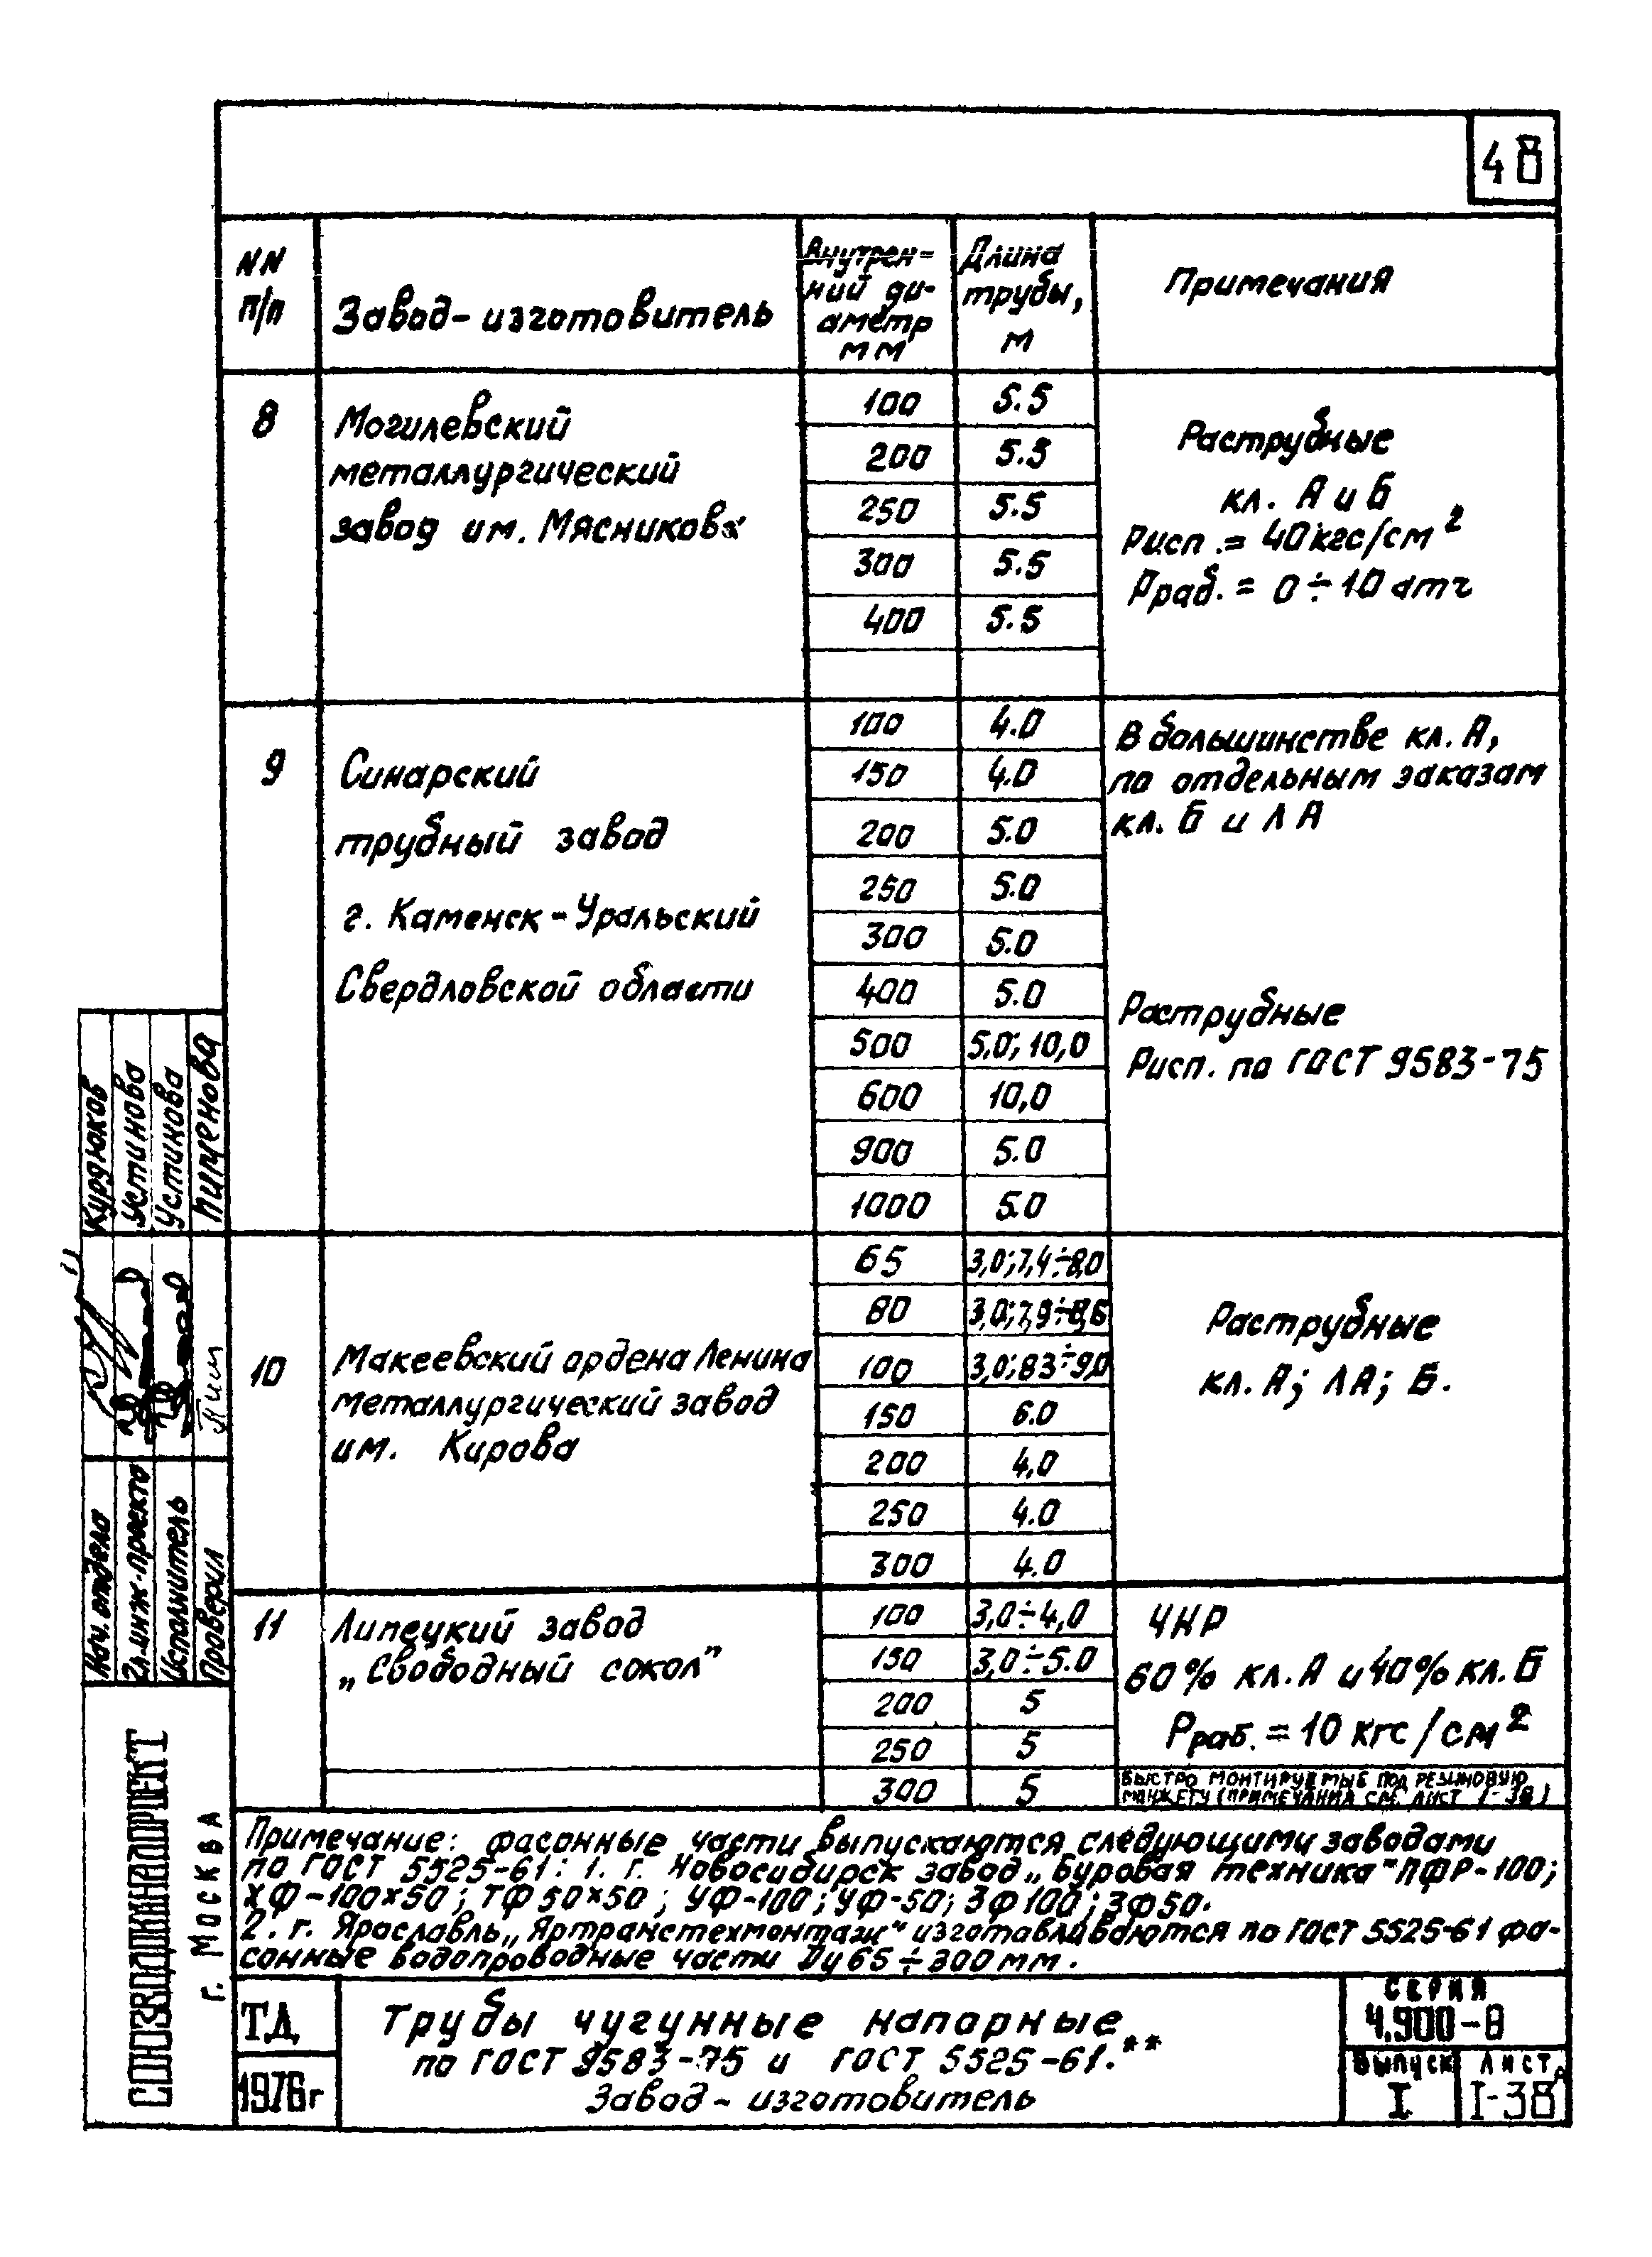 48
NN п/п
Завод-изготовитель
Внутрен-
ний ди-
аметр
мм
Длина
трубы,
м
Примечания
8
Могилевский
металлургический
завод им. Мясникова
100 5.5
200 5.5
250 5.5
300 5.5
400 5.5
Раструбные
кл. А и Б
Рисп.= 40кгс/см²
Рраб.= 0÷10 атм
9
Синарский
трубный завод
г. Каменск-Уральский
Свердловской области
100 4.0
150 4.0
200 5.0
250 5.0
300 5.0
400 5.0
500 5.0; 10,0
600 10,0
900 5.0
1000 5.0
В большинстве кл. А,
по отдельным заказам
кл. Б и ЛА
Раструбные
Рисп. по ГОСТ 9583-75
10
Макеевский ордена Ленина
металлургический завод
им. Кирова
65 3,0;7,4÷8,0
80 3,0;7,9÷8,6
100 3,0;8,3÷9,0
150 6.0
200 4,0
250 4.0
300 4.0
Раструбные
кл. А; ЛА; Б.
11
Липецкий завод
„Свободный сокол"
100 3,0÷4,0
150 3,0÷5.0
200 5
250 5
300 5
ЧНР
60% кл. А и 40% кл. Б
Рраб. = 10 кгс/см²
Быстро монтируемые под резиновую
манжету (примечания см. лист I-38)
Примечание: фасонные части выпускаются следующими заводами
по ГОСТ 5525-61: 1. г. Новосибирск завод „Буровая техника" ПФР-100;
ХФ-100×50; ТФ 50×50; УФ-100; УФ-50; ЗФ100; ЗФ50.
2. г. Ярославль „Яртранстехмонтаж" изготавливаются по ГОСТ 5525-61 фа-
сонные водопроводные части Ду 65÷300 мм.
ТД
1976г
Трубы чугунные напорные
по ГОСТ 9583-75 и ГОСТ 5525-61.**
Завод-изготовитель
серия
4.900-8
Выпуск
I
Лист
I-38
Нач. отдела Курдюков
Гл. инж. проекта Устинова
Исполнитель Устинова
Проверил Пименова
СОЮЗВОДОКАНАЛПРОЕКТ
г. Москва